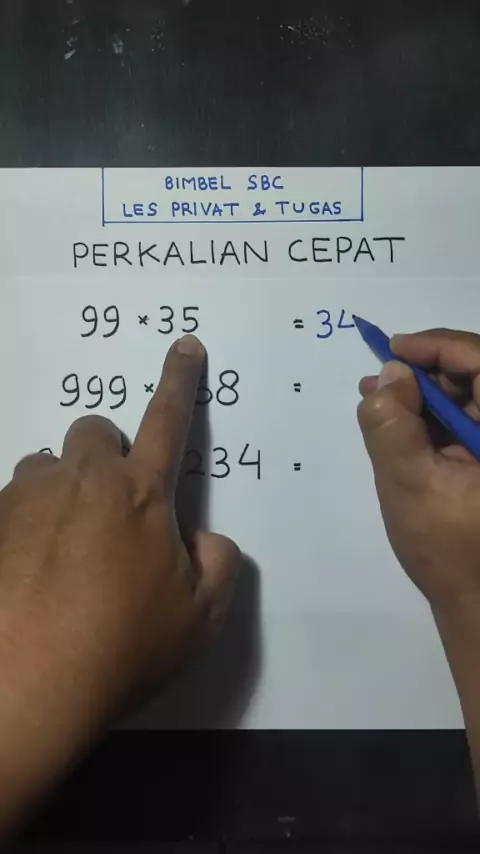 BIMBEL SBC
LES PRIVAT & TUGAS
PERKALIAN CEPAT
99 × 35 = 34
999 × 8 =
234 =